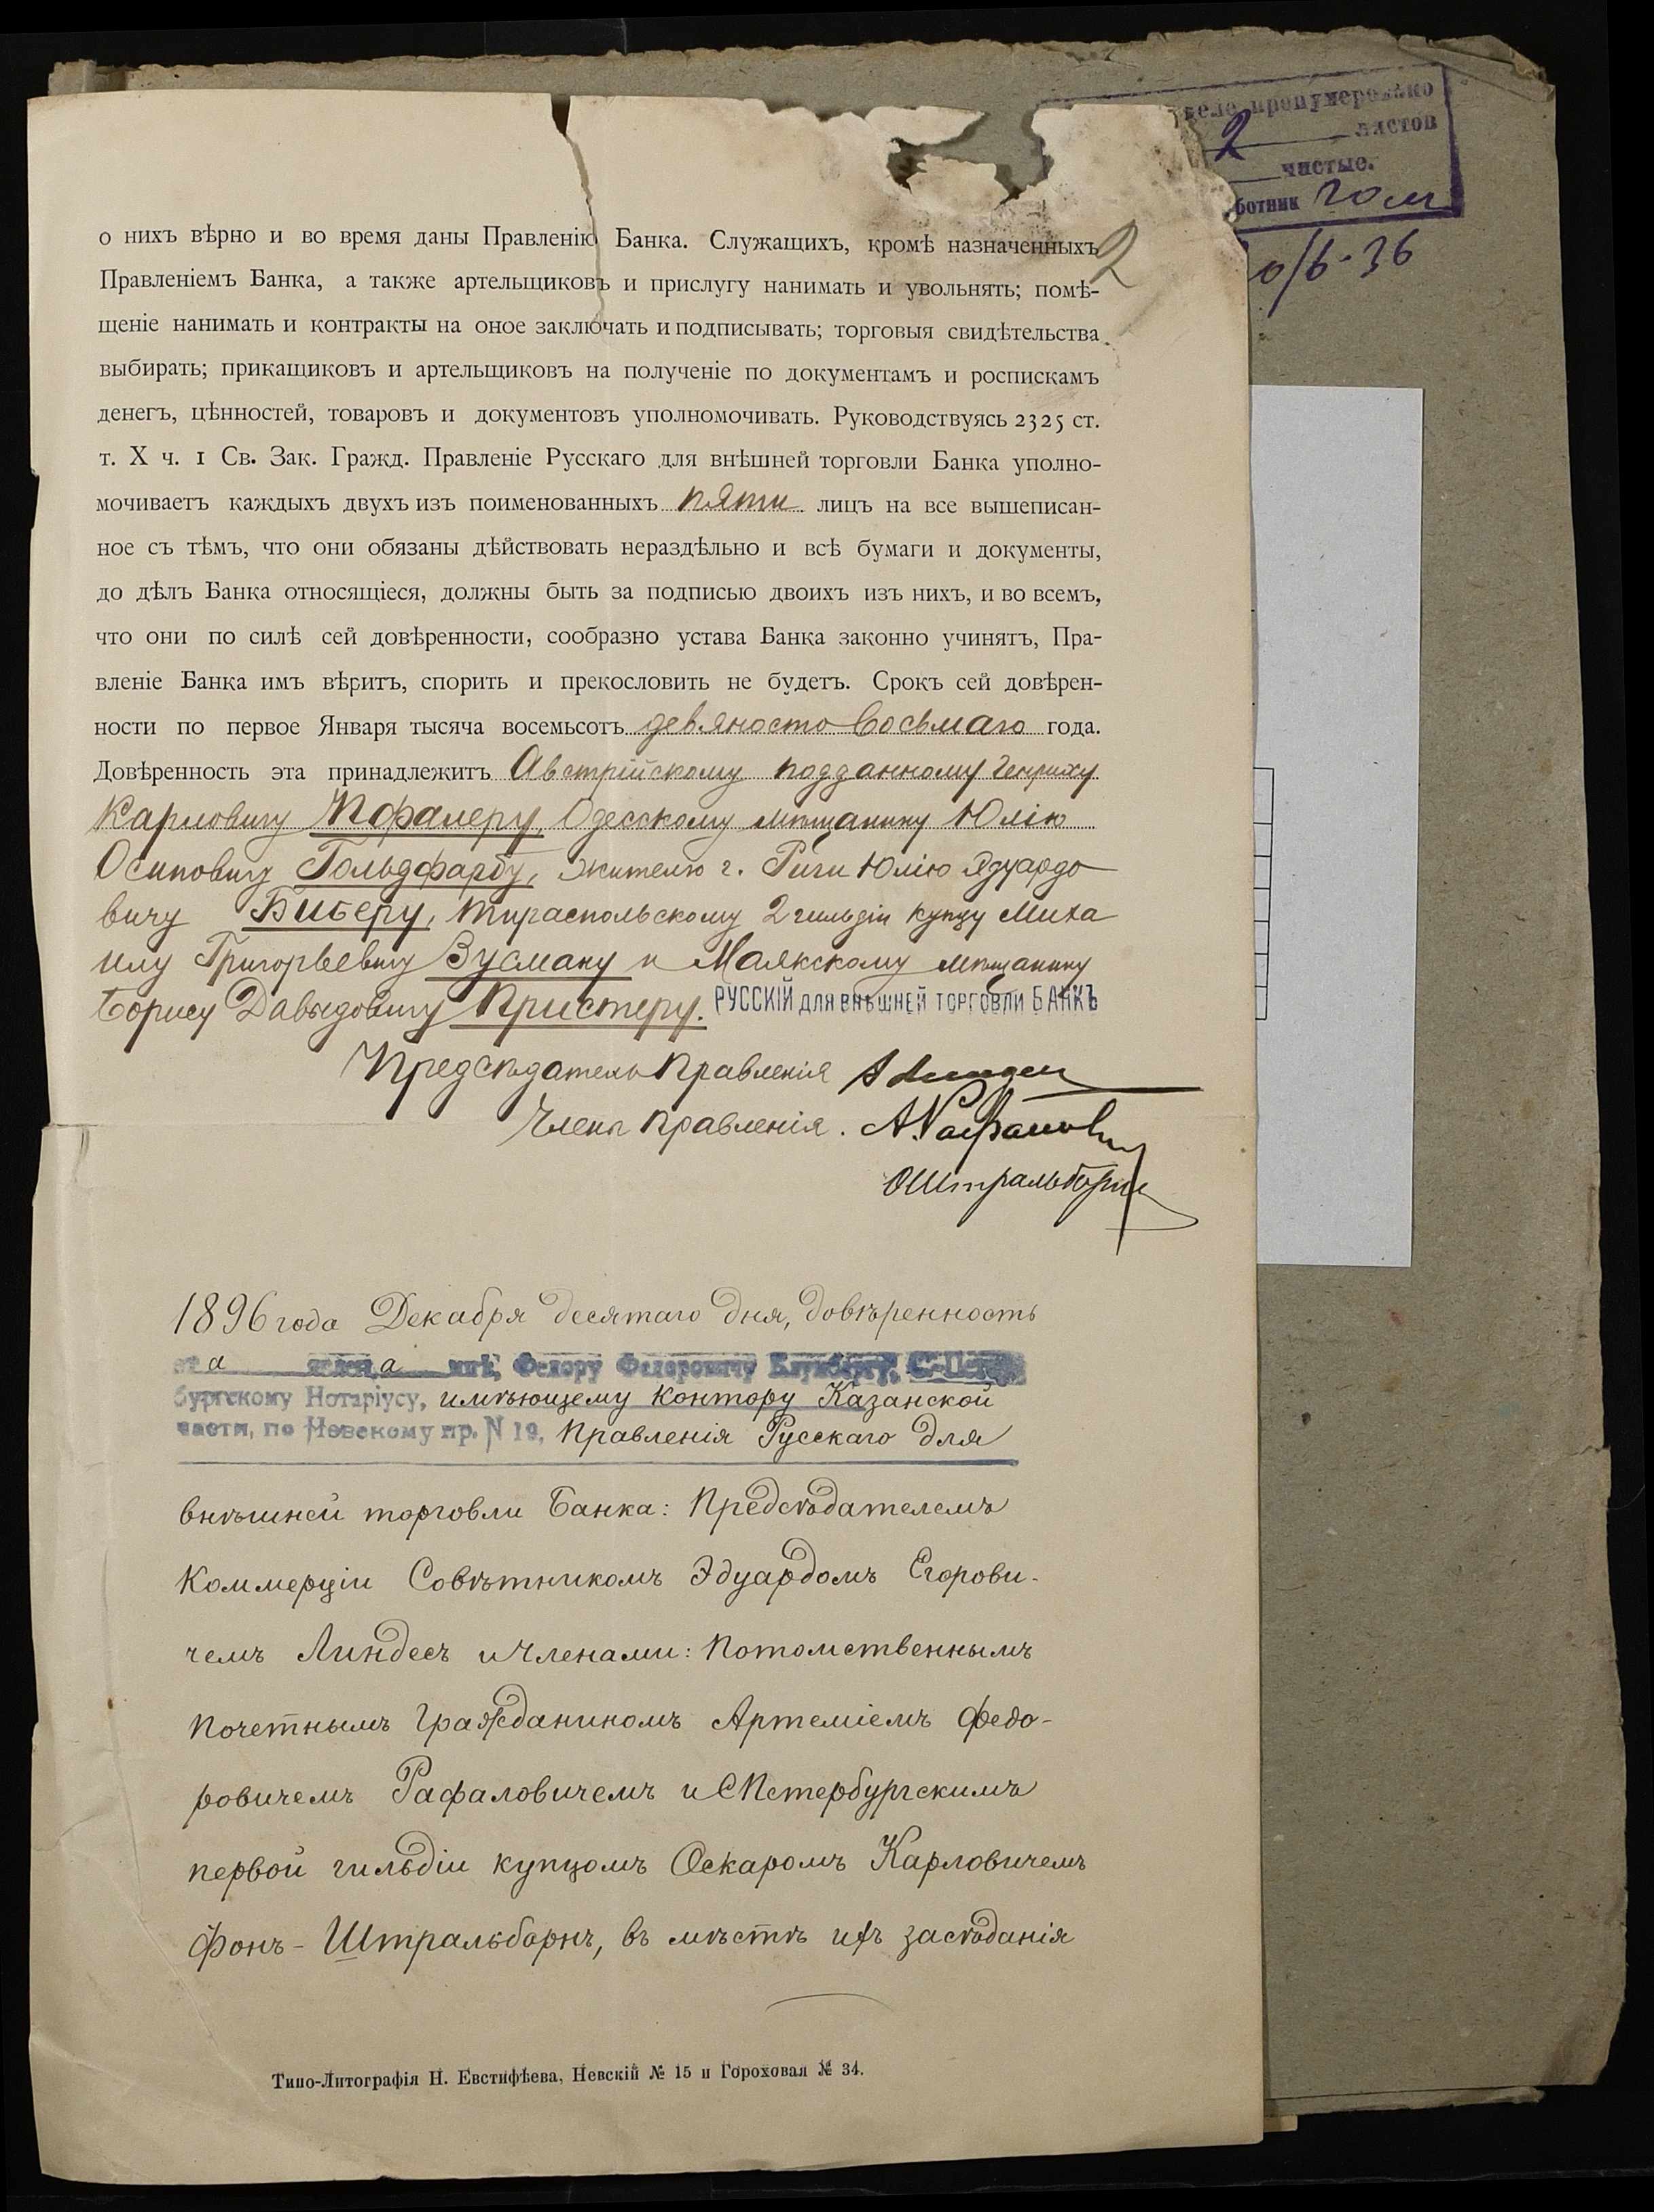 дело пронумеровано
2 листов
чистые.
2
о нихъ вѣрно и во время даны Правленію Банка. Служащихъ, кромѣ назначенныхъ
Правленіемъ Банка, а также артельщиковъ и прислугу нанимать и увольнять; помѣ-
щеніе нанимать и контракты на оное заключать и подписывать; торговыя свидѣтельства
выбирать; прикащиковъ и артельщиковъ на полученіе по документамъ и роспискамъ
денегъ, цѣнностей, товаровъ и документовъ уполномочивать. Руководствуясь 2325 ст.
т. X ч. 1 Св. Зак. Гражд. Правленіе Русскаго для внѣшней торговли Банка уполно-
мочиваетъ каждыхъ двухъ изъ поименованныхъ пяти лицъ на все вышеписан-
ное съ тѣмъ, что они обязаны дѣйствовать нераздѣльно и всѣ бумаги и документы,
до дѣлъ Банка относящіеся, должны быть за подписью двоихъ изъ нихъ, и во всемъ,
что они по силѣ сей довѣренности, сообразно устава Банка законно учинятъ, Пра-
вленіе Банка имъ вѣритъ, спорить и прекословить не будетъ. Срокъ сей довѣрен-
ности по первое Января тысяча восемьсотъ девяносто восьмаго года.
Довѣренность эта принадлежитъ Австрійскому подданному Генриху
Карловичу Пфалеру, Одесскому мѣщанину Юлію
Осиповичу Гольдфарбу, жителю г. Риги Юлію Эдуардо
вичу Биберу, тираспольскому 2 гильдіи купцу Миха
илу Григорьевичу Зусману и Маякскому мѣщанину
Борису Давыдовичу Пристеру. РУССКІЙ ДЛЯ ВНѢШНЕЙ ТОРГОВЛИ БАНКЪ
Предсѣдатель Правленія
Члены Правленія. А. Рафалович
О Штральборн
1896 года Декабря десятаго дня, довѣренность
эта явлена мнѣ, Федору Федоровичу С.-Петер
бургскому Нотаріусу, имѣющему контору Казанской
части, по Невскому пр. N 19, Правленія Русскаго для
внѣшней торговли Банка: Предсѣдателемъ
Коммерціи Совѣтникомъ Эдуардомъ Егорови-
чемъ Линдесъ и Членами: Потомственнымъ
Почетнымъ Гражданиномъ Артеміемъ Федо-
ровичемъ Рафаловичемъ и СПетербургскимъ
первой гильдіи купцомъ Оскаромъ Карловичемъ
Фонъ-Штральборнъ, въ мѣстѣ ихъ засѣданія
Типо-Литографія Н. Евстифѣева, Невскій № 15 и Гороховая № 34.